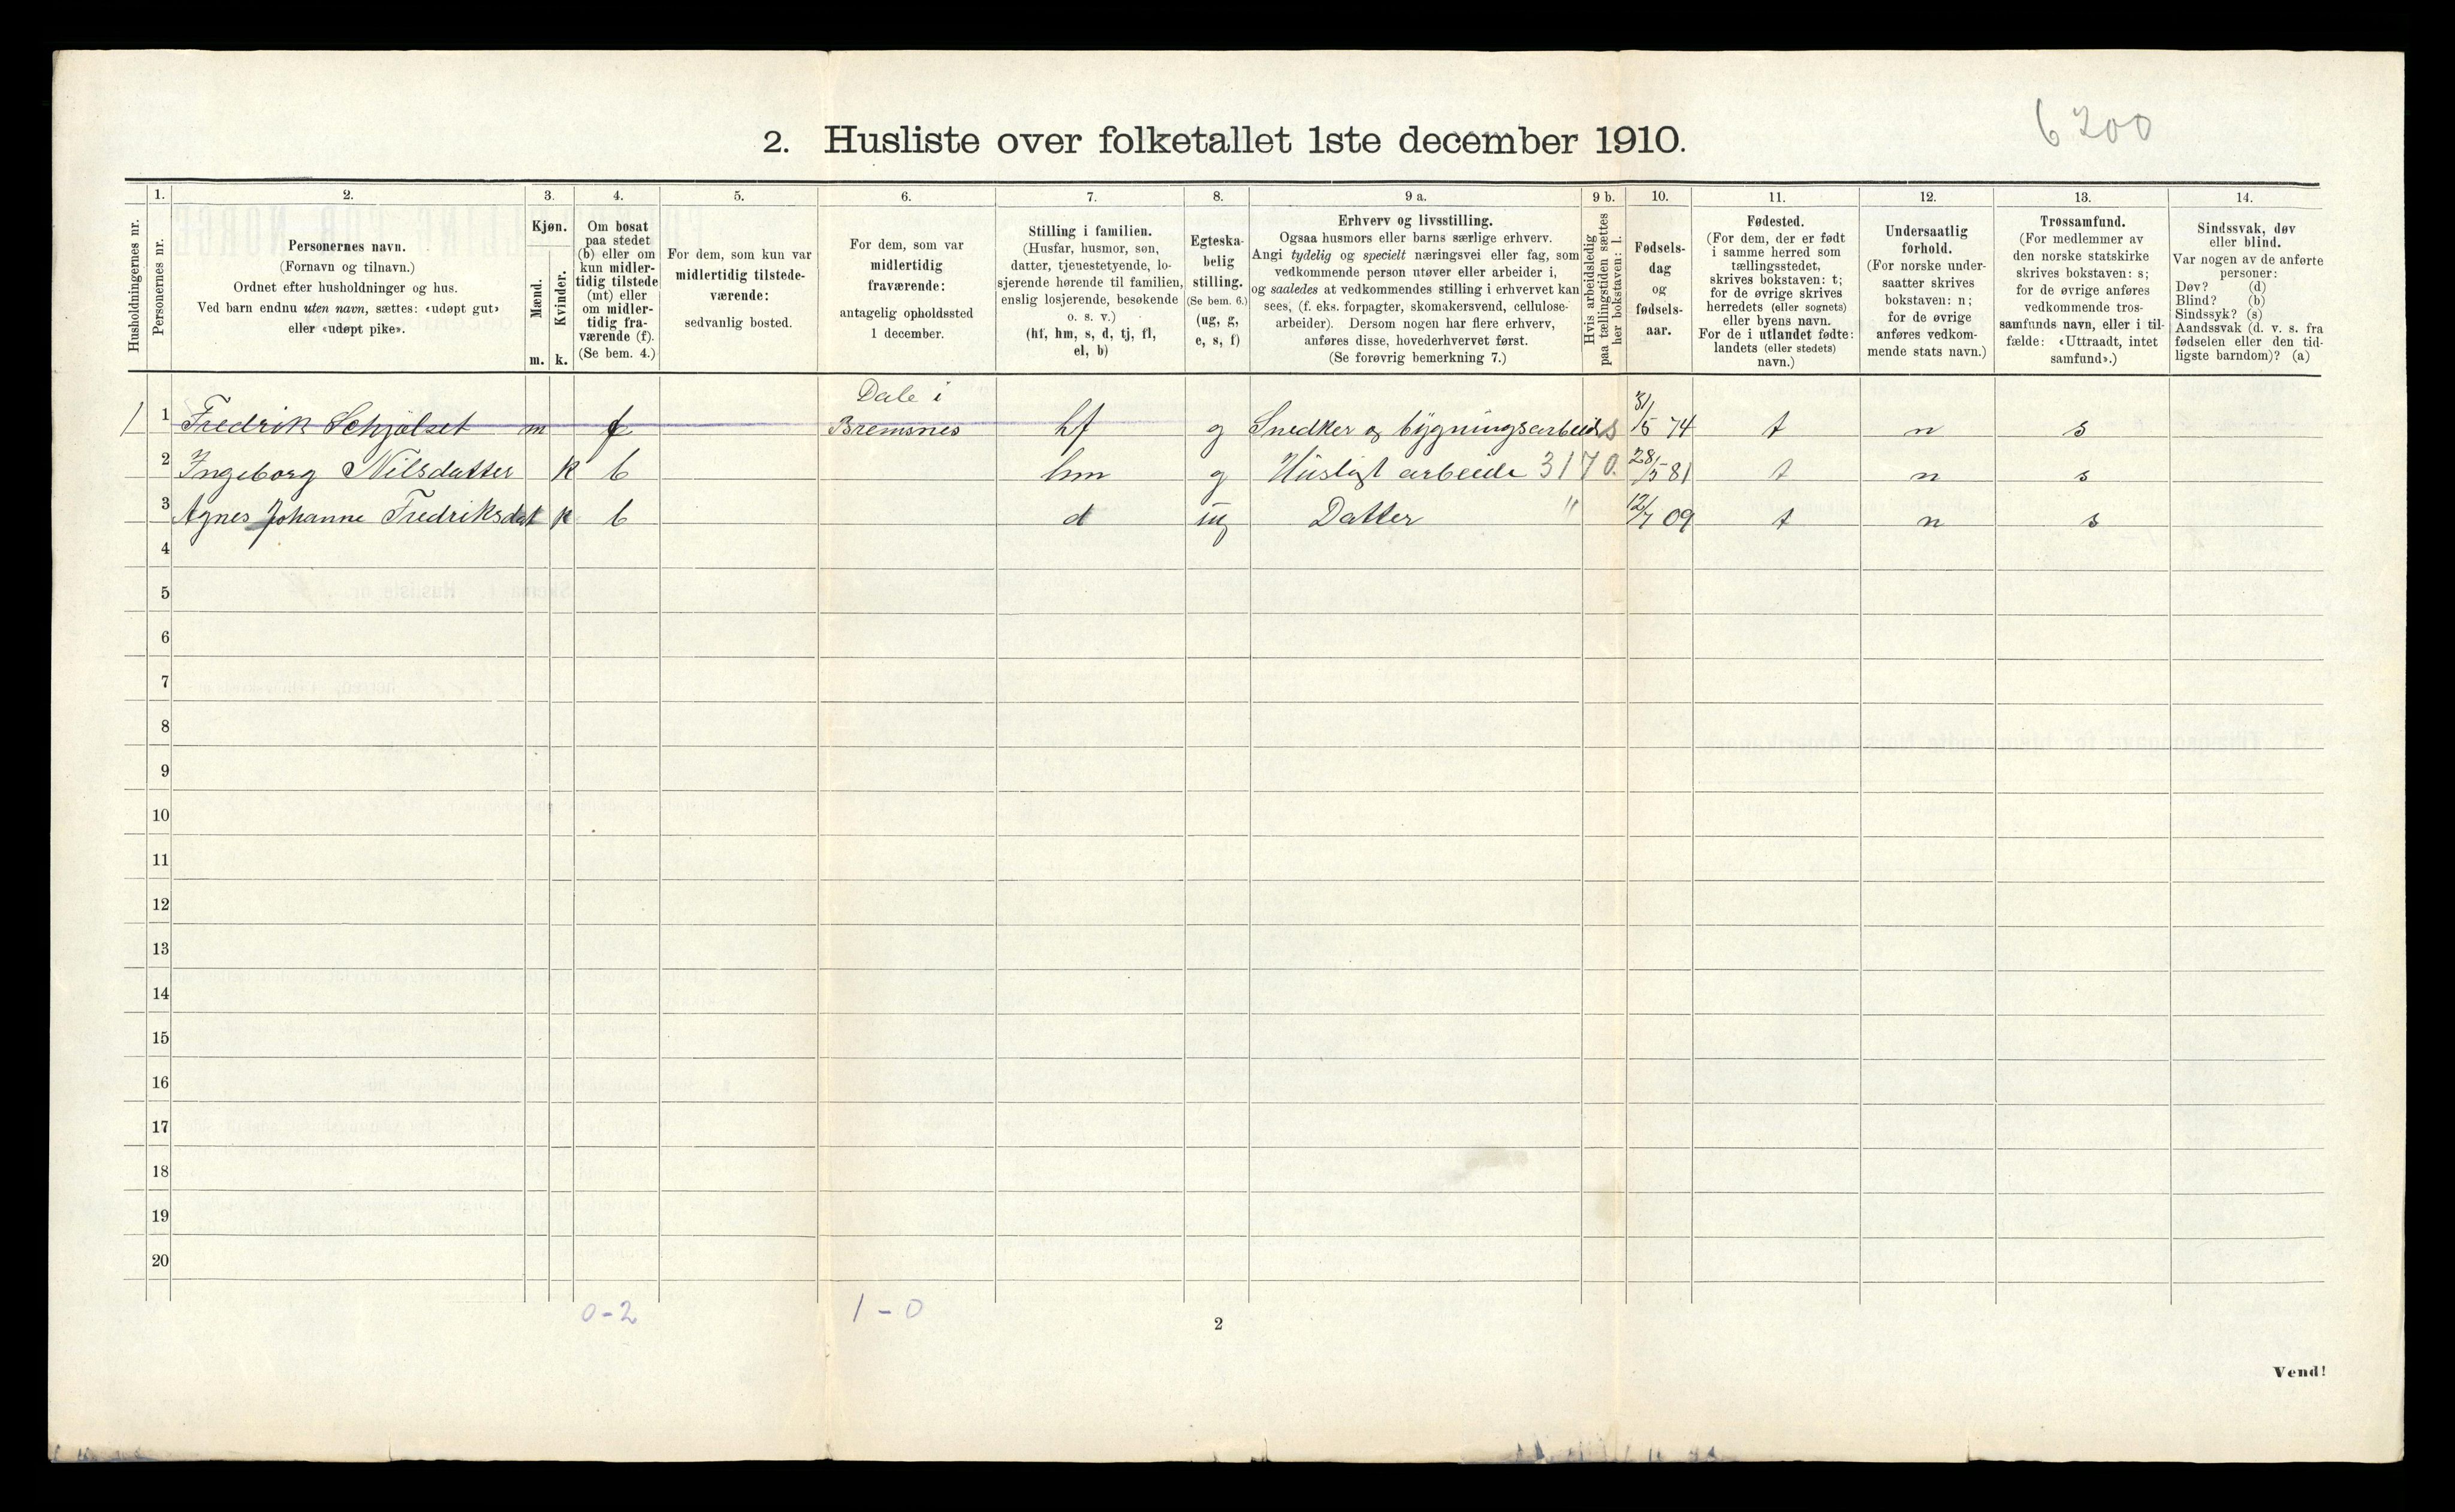 6200
2. Husliste over folketallet 1ste december 1910.
Husholdningernes nr.
1.
Personernes nr.
2.
Personernes navn.
(Fornavn og tilnavn.)
Ordnet efter husholdninger og hus.
Ved barn endnu uten navn, sættes: «udøpt gut»
eller «udøpt pike».
3.
Kjøn.
Mænd.
Kvinder.
m. k.
4.
Om bosat
paa stedet
(b) eller om
kun midler-
tidig tilstede
(mt) eller
om midler-
tidig fra-
værende (f).
(Se bem. 4.)
5.
For dem, som kun var
midlertidig tilstede-
værende:
sedvanlig bosted.
6.
For dem, som var
midlertidig
fraværende:
antagelig opholdssted
1 december.
7.
Stilling i familien.
(Husfar, husmor, søn,
datter, tjenestetyende, lo-
sjerende hørende til familien,
enslig losjerende, besøkende
o. s. v.)
(hf, hm, s, d, tj, fl,
el, b)
8.
Egteska-
belig
stilling.
(Se bem. 6.)
(ug, g,
e, s, f)
9 a.
Erhverv og livsstilling.
Ogsaa husmors eller barns særlige erhverv.
Angi tydelig og specielt næringsvei eller fag, som
vedkommende person utøver eller arbeider i,
og saaledes at vedkommendes stilling i erhvervet kan
sees, (f. eks. forpagter, skomakersvend, cellulose-
arbeider). Dersom nogen har flere erhverv,
anføres disse, hovederhvervet først.
(Se forøvrig bemerkning 7.)
9 b.
Hvis arbeidsledig
paa tællingstiden sættes
her bokstaven: l.
10.
Fødsels-
dag
og
fødsels-
aar.
11.
Fødested.
(For dem, der er født
i samme herred som
tællingsstedet,
skrives bokstaven: t;
for de øvrige skrives
herredets (eller sognets)
eller byens navn.
For de i utlandet fødte:
landets (eller stedets)
navn.)
12.
Undersaatlig
forhold.
(For norske under-
saatter skrives
bokstaven: n;
for de øvrige
anføres vedkom-
mende stats navn.)
13.
Trossamfund.
(For medlemmer av
den norske statskirke
skrives bokstaven: s;
for de øvrige anføres
vedkommende tros-
samfunds navn, eller i til-
fælde: «Uttraadt, intet
samfund».)
14.
Sindssvak, døv
eller blind.
Var nogen av de anførte
personer:
Døv? (d)
Blind? (b)
Sindssyk? (s)
Aandssvak (d. v. s. fra
fødselen eller den tid-
ligste barndom)? (a)
Dale i
1 1 Fredrik Schjølset m f Bremsnes hf g Snedker og bygningsarbeid s 31/5 74 t n s
2 Ingeborg Nilsdatter k b hm g Husligt arbeide 3170. 28/5 81 t n s
3 Agnes Johanne Fredriksdat k b d ug Datter " 12/7 09 t n s
4
5
6
7
8
9
10
11
12
13
14
15
16
17
18
19
20
0-2 1-0
2
Vend!